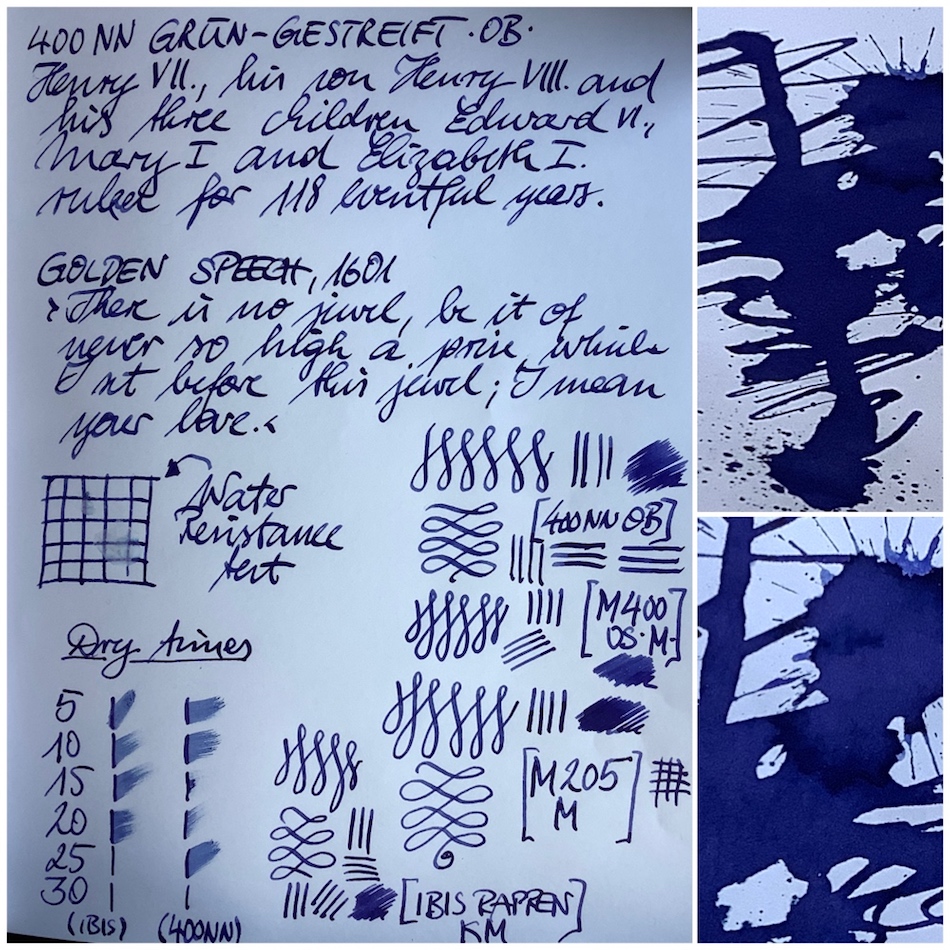 400 NN GRÜN-GESTREIFT · OB ·
Henry VII., his son Henry VIII. and
his three children Edward VI.,
Mary I and Elizabeth I.
ruled for 118 eventful years.
GOLDEN SPEECH, 1601
›There is no jewel, be it of
never so high a price, which
I set before this jewel; I mean
your love.‹
Water
resistance
test
[400NN OB]
[M400
OS · M·]
Dry times
5
10
15
20
25
30
(IBIS) (400NN)
[M205
M]
[IBIS RAPPEN]
KM